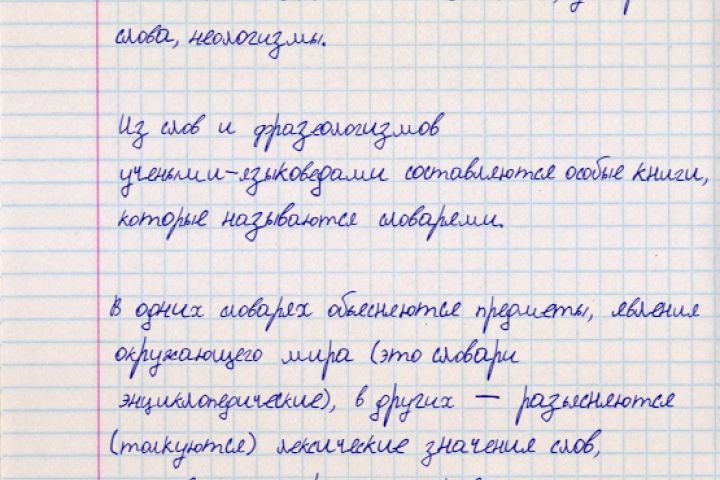 слова, неологизмы.
Из слов и фразеологизмов
учеными-языковедами составляются особые книги,
которые называются словарями.
В одних словарях объясняются предметы, явления
окружающего мира (это словари
энциклопедические), в других — разъясняются
(толкуются) лексические значения слов,